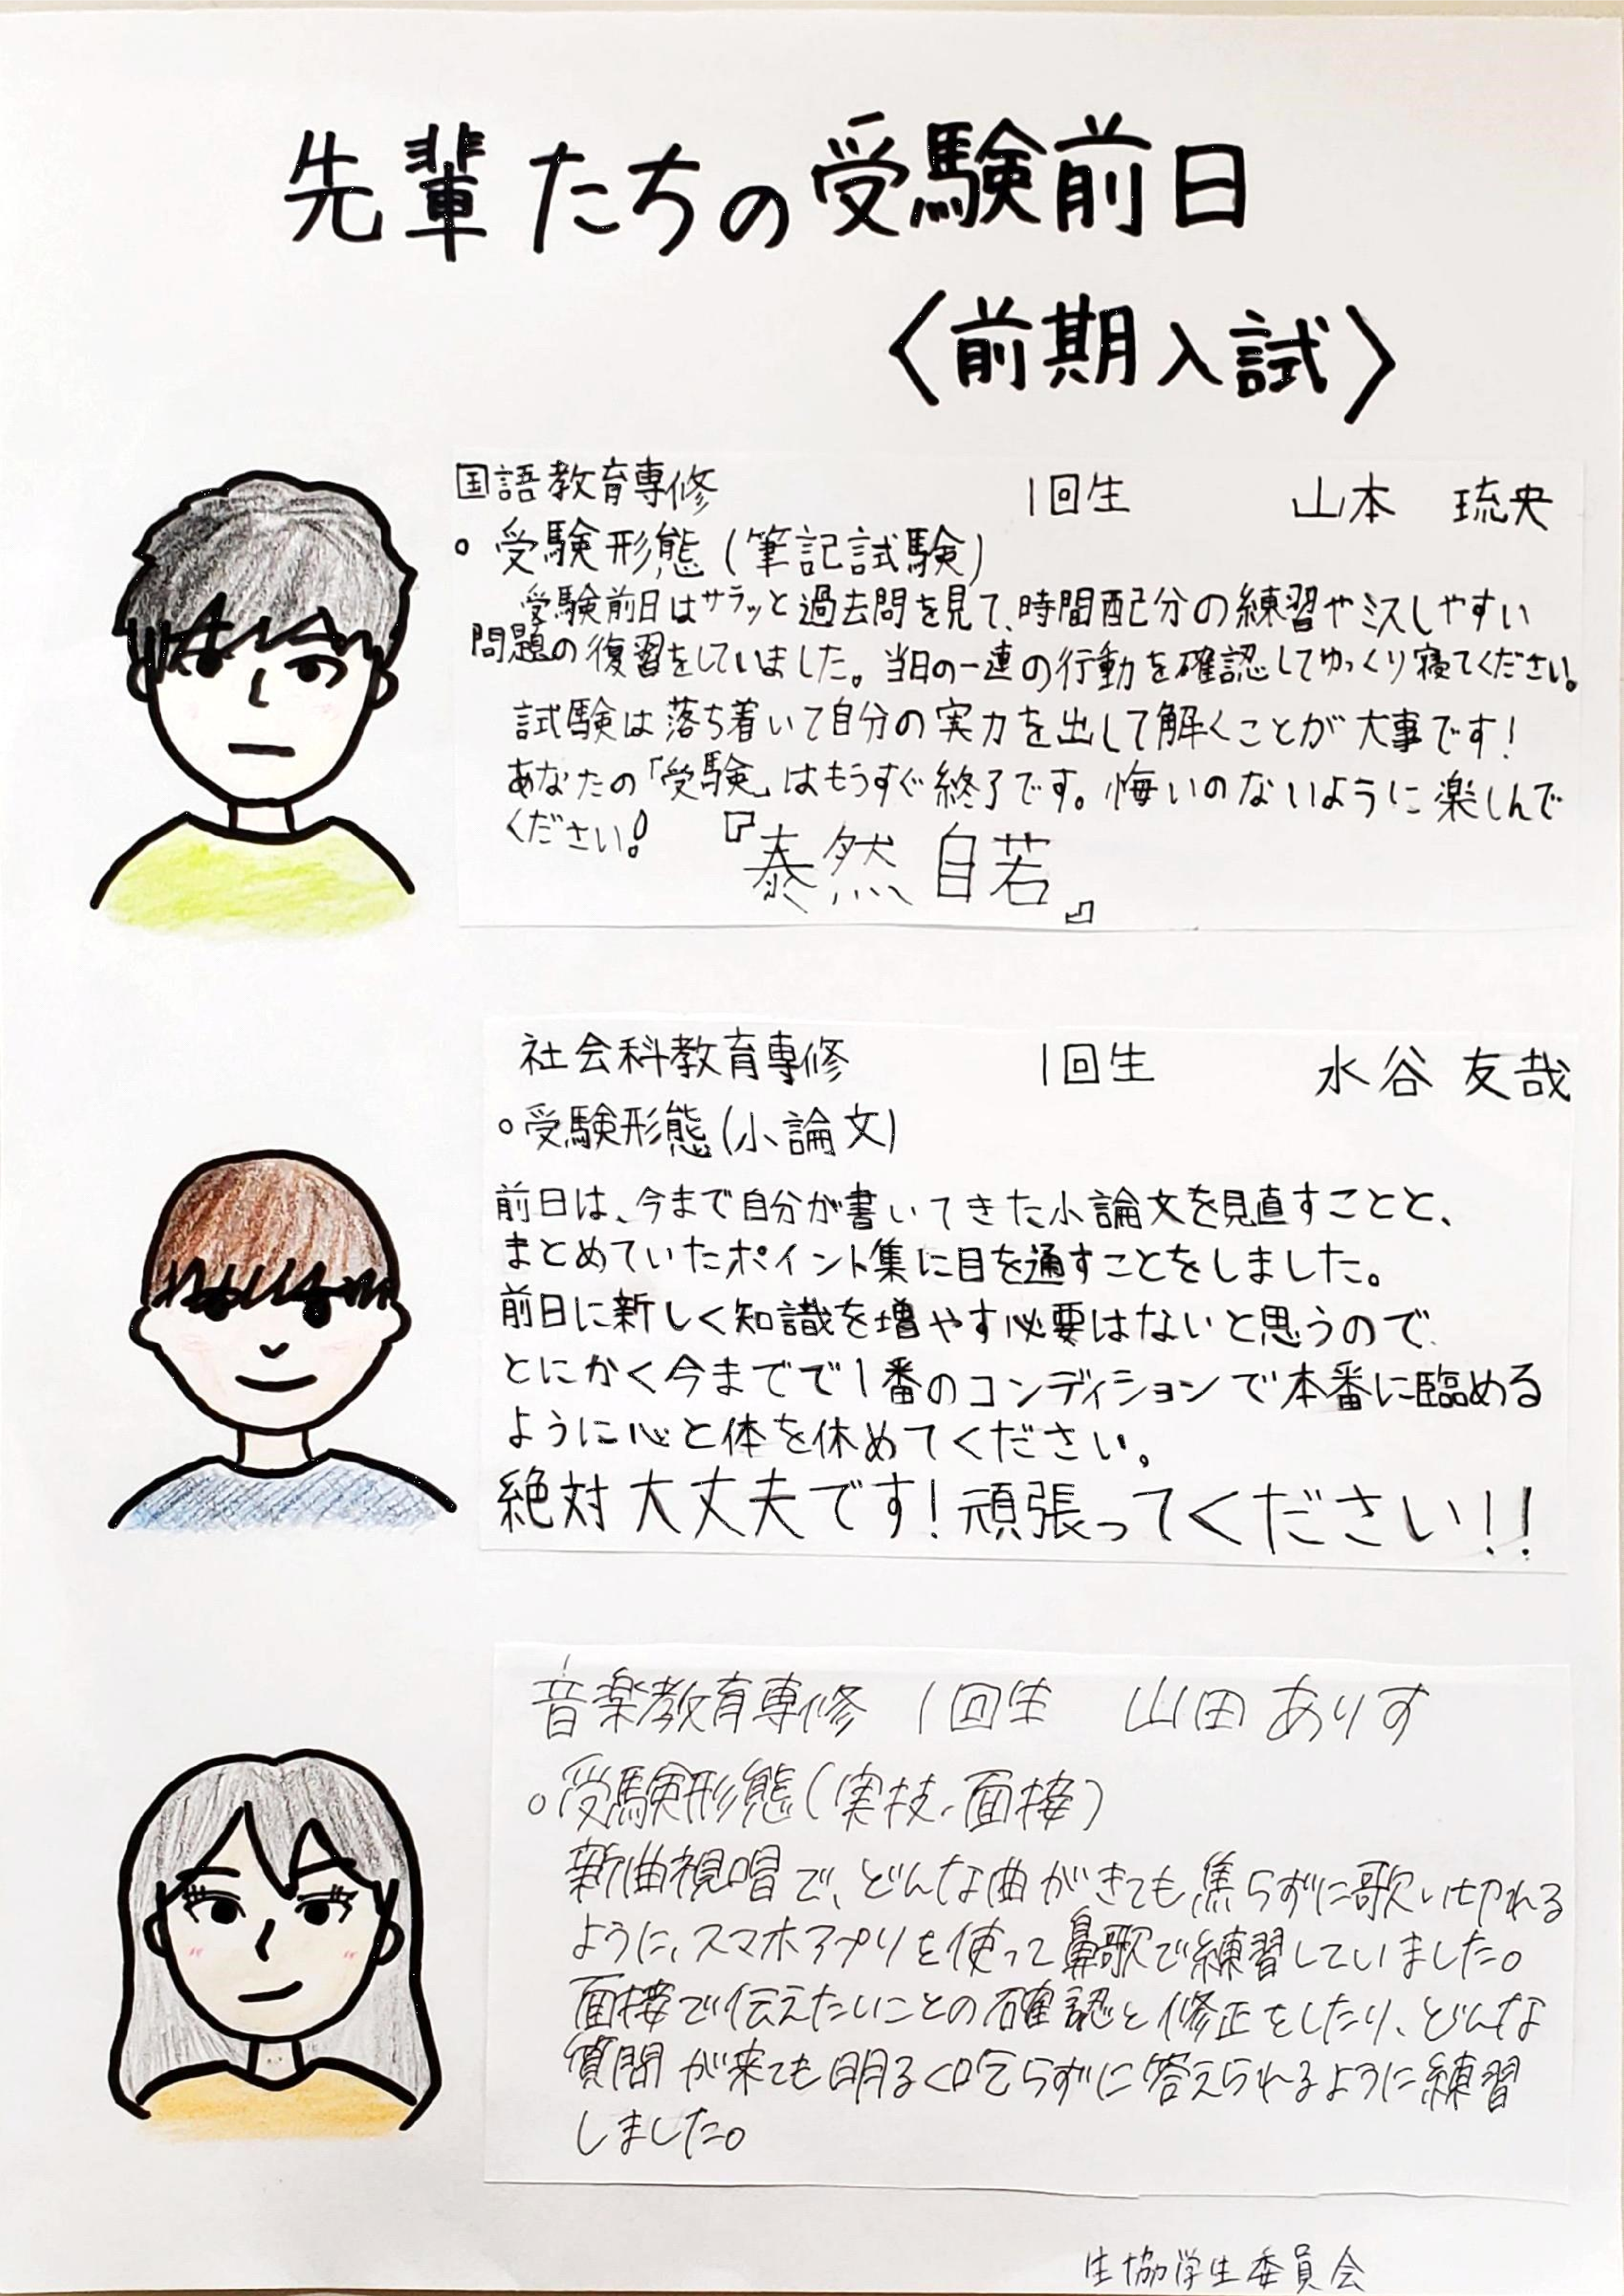 先輩たちの受験前日
〈前期入試〉
国語教育専修 1回生 山本 琉央
○受験形態(筆記試験)
受験前日はサラッと過去問を見て、時間配分の練習やミスしやすい
問題の復習をしていました。当日の一連の行動を確認してゆっくり寝てください。
試験は落ち着いて自分の実力を出して解くことが大事です!
あなたの「受験」はもうすぐ終了です。悔いのないように楽しんで
ください!『泰然自若』
社会科教育専修 1回生 水谷 友哉
○受験形態(小論文)
前日は、今まで自分が書いてきた小論文を見直すことと、
まとめていたポイント集に目を通すことをしました。
前日に新しく知識を増やす必要はないと思うので、
とにかく今までで1番のコンディションで本番に臨める
ように心と体を休めてください。
絶対大丈夫です!頑張ってください!!
音楽教育専修 1回生 山田 ありす
○受験形態(実技、面接)
新曲視唱で、どんな曲がきても焦らずに歌い切れる
ように、スマホアプリを使って鼻歌で練習していました。
面接で伝えたいことの確認と修正をしたり、どんな
質問が来ても明るく吃らずに答えられるように練習
しました。
生協学生委員会